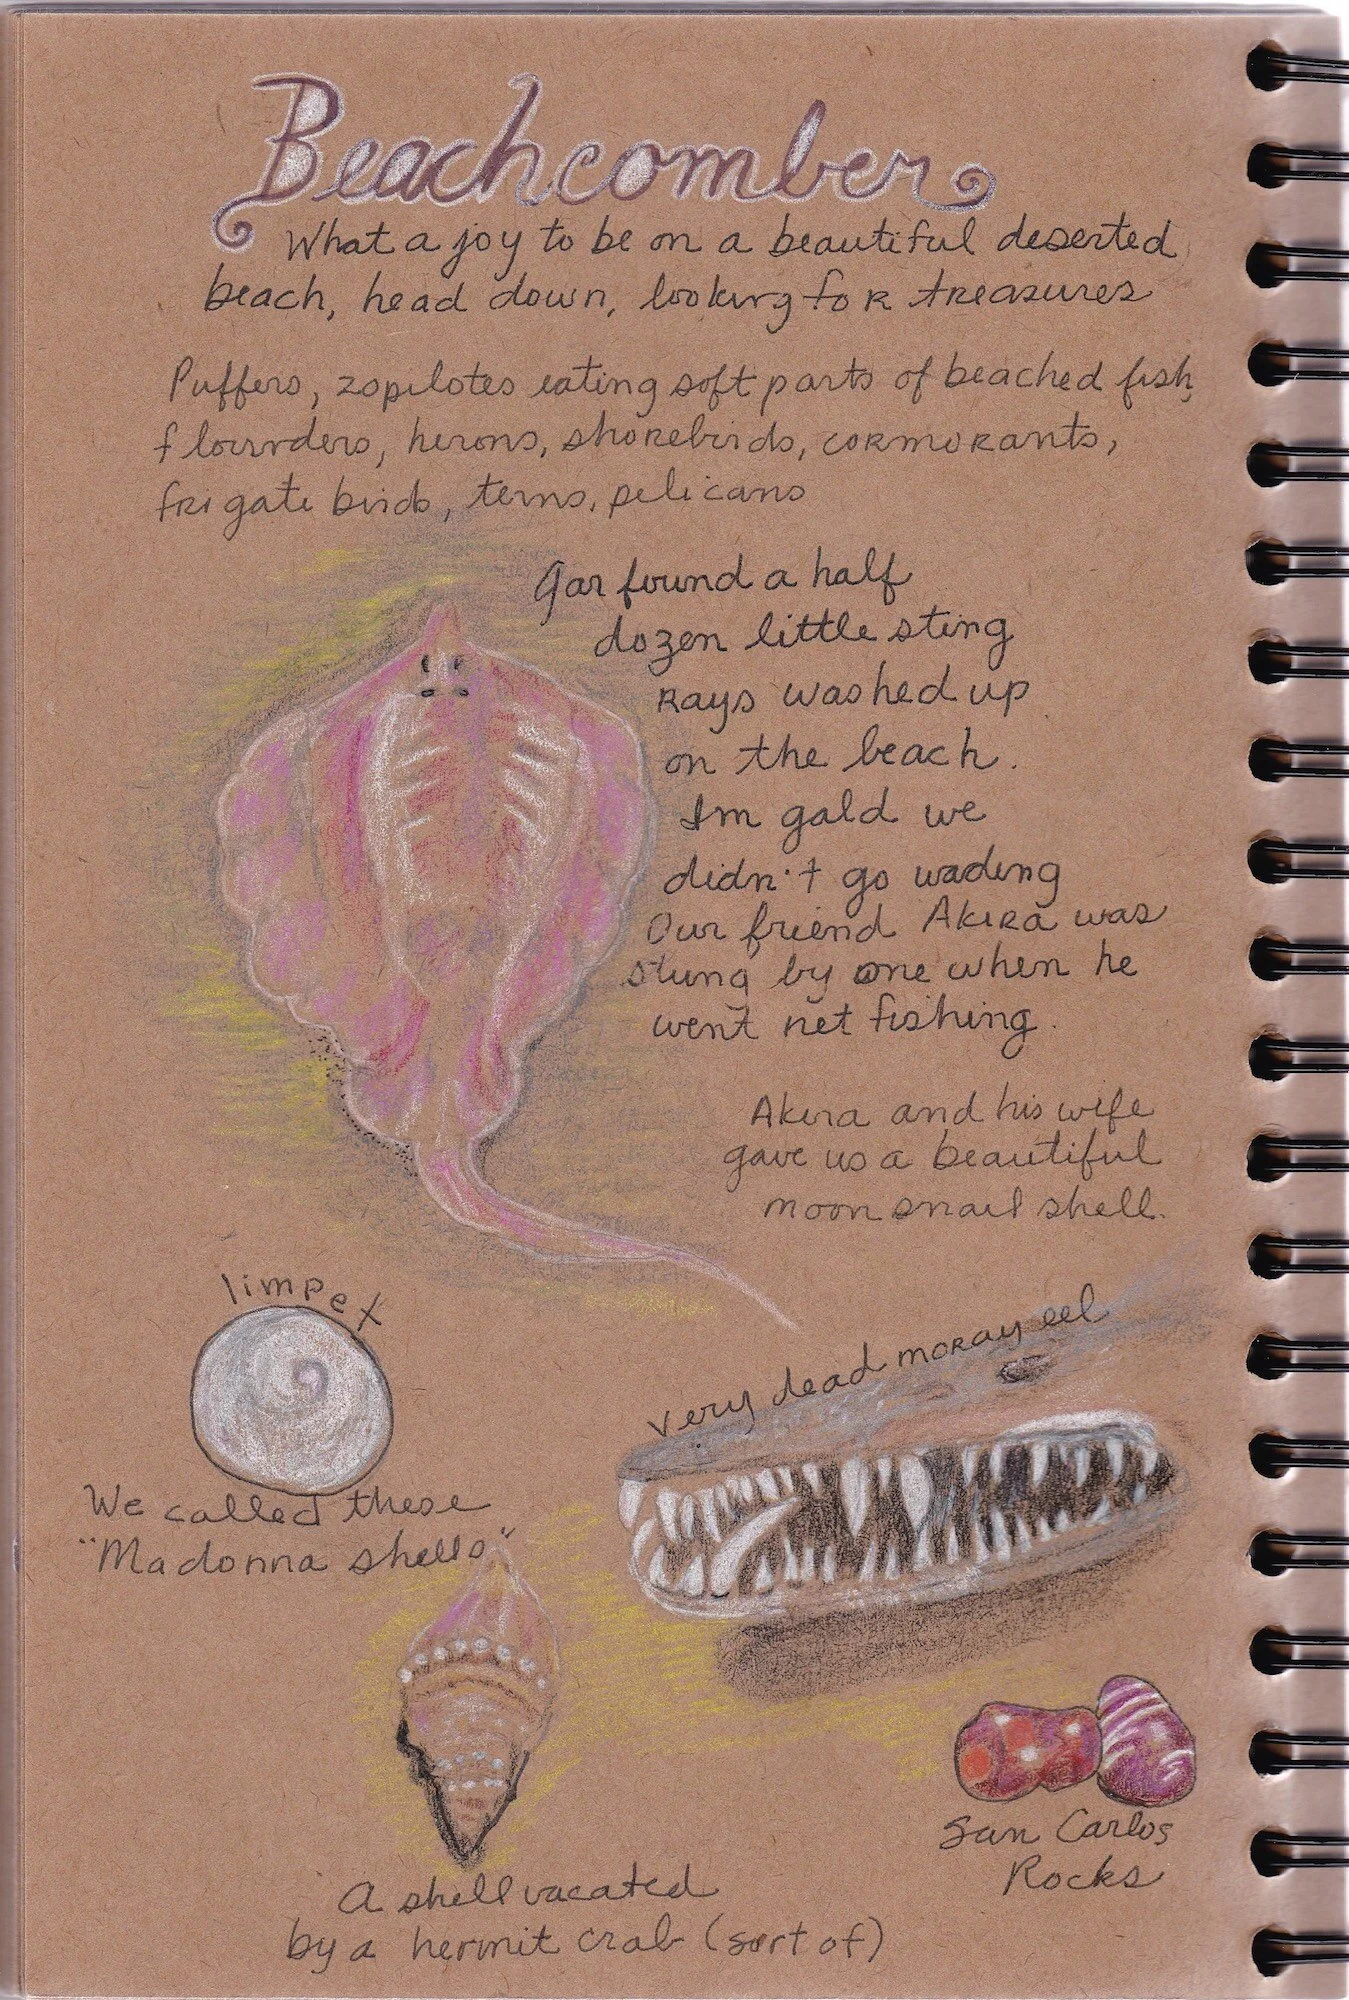 Beachcomber
What a joy to be on a beautiful deserted
beach, head down, looking for treasures
Puffers, zopilotes eating soft parts of beached fish,
flounders, herons, shorebirds, cormorants,
frigate birds, terns, pelicans
Gar found a half
dozen little sting
rays washed up
on the beach.
Im gald we
didn't go wading
Our friend Akira was
stung by one when he
went net fishing.
Akira and his wife
gave us a beautiful
moon snail shell.
limpet
very dead moray eel
We called these
"Madonna shells"
San Carlos
Rocks
A shell vacated
by a hermit crab (sort of)